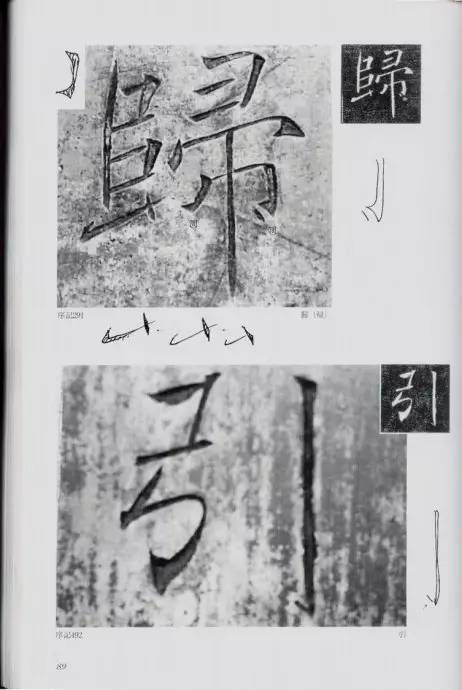 歸
歸
序記291
歸（帰）
引
引
序記492
引
89